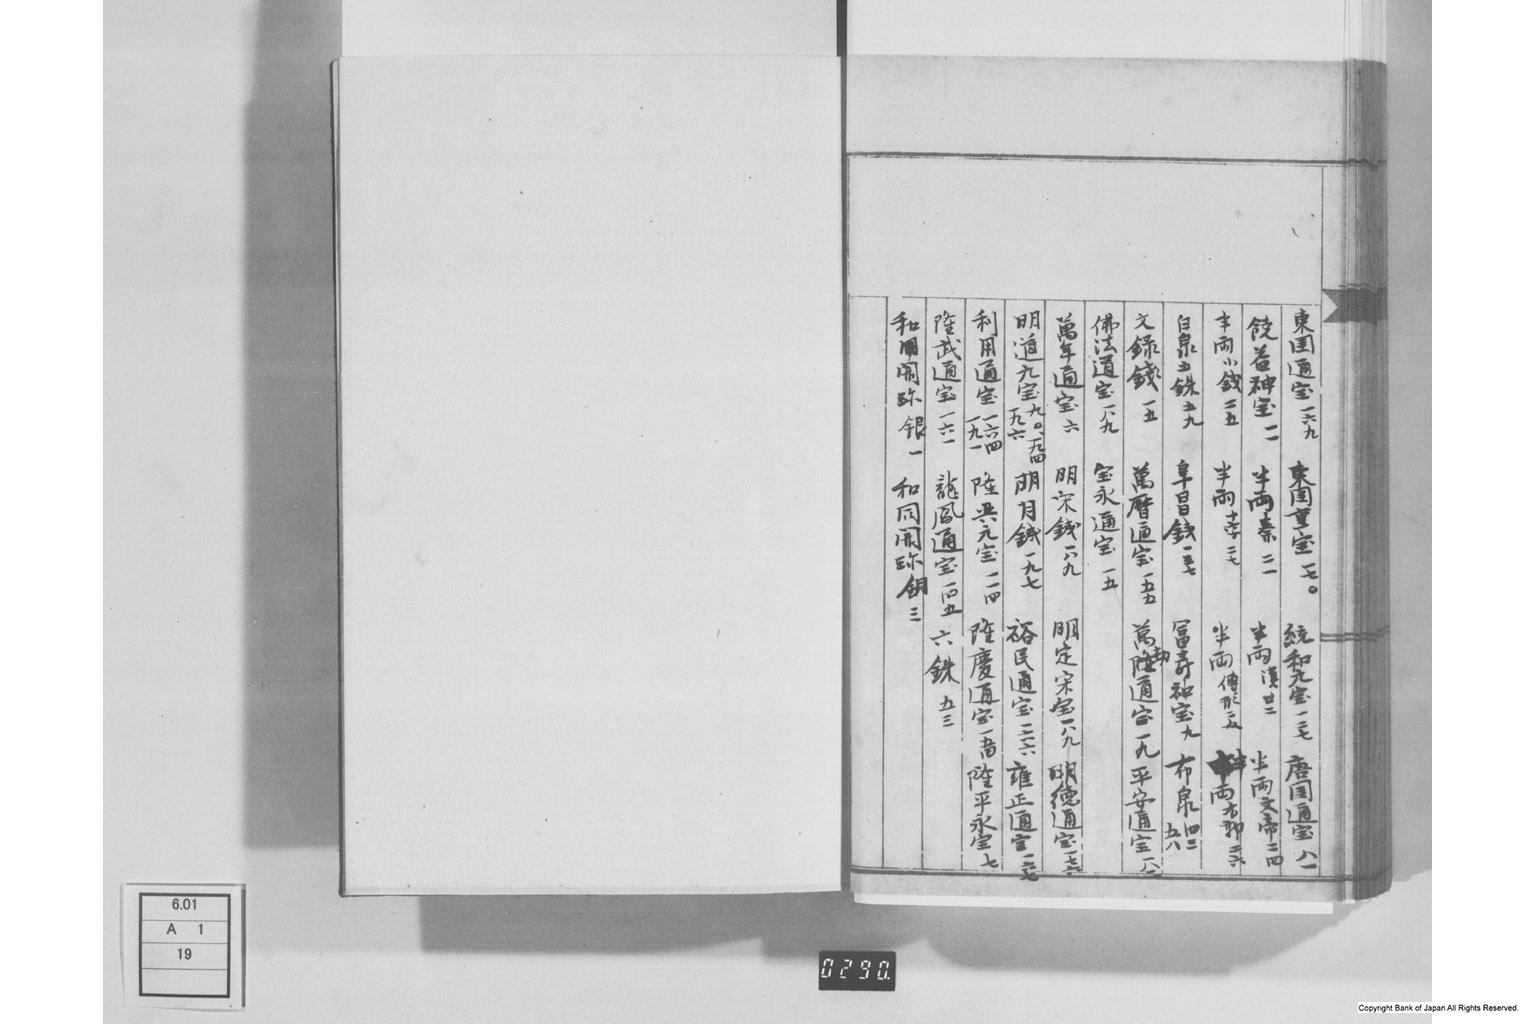 東国通宝 一六九 東国重宝 一七〇 統和元宝 一三七 唐国通宝 八一
饒益神宝 一一 半両 秦 二一 半両 漢 廿二 半両 文帝 二四
半両小銭 二五 半両 二七 半両 傳形 半両 二六
白泉五銖 五九 阜昌銭 一三七 富寿神宝 九 布泉 四二 五八
文録銭 一五 萬暦通宝 一五五 萬 通宝 一九 平安通宝
佛法通宝 一八九 宝永通宝 一五
萬年通宝 六 明宋銭 一八九 明定宋宝 一八九 明徳通宝 一七六
明道九宝 九〇、一九四 一九六 明月銭 一九七 裕民通宝 一六六 雍正通宝
利用通宝 一六四 一九一 隆興元宝 一一四 隆慶通宝 隆平永宝 七
隆武通宝 一六一 龍鳳通宝 一四五 六銖 五三
和同開珎 銀 一 和同開珎 銅 三
6.01
A 1
19
0290.
Copyright Bank of Japan All Rights Reserved.